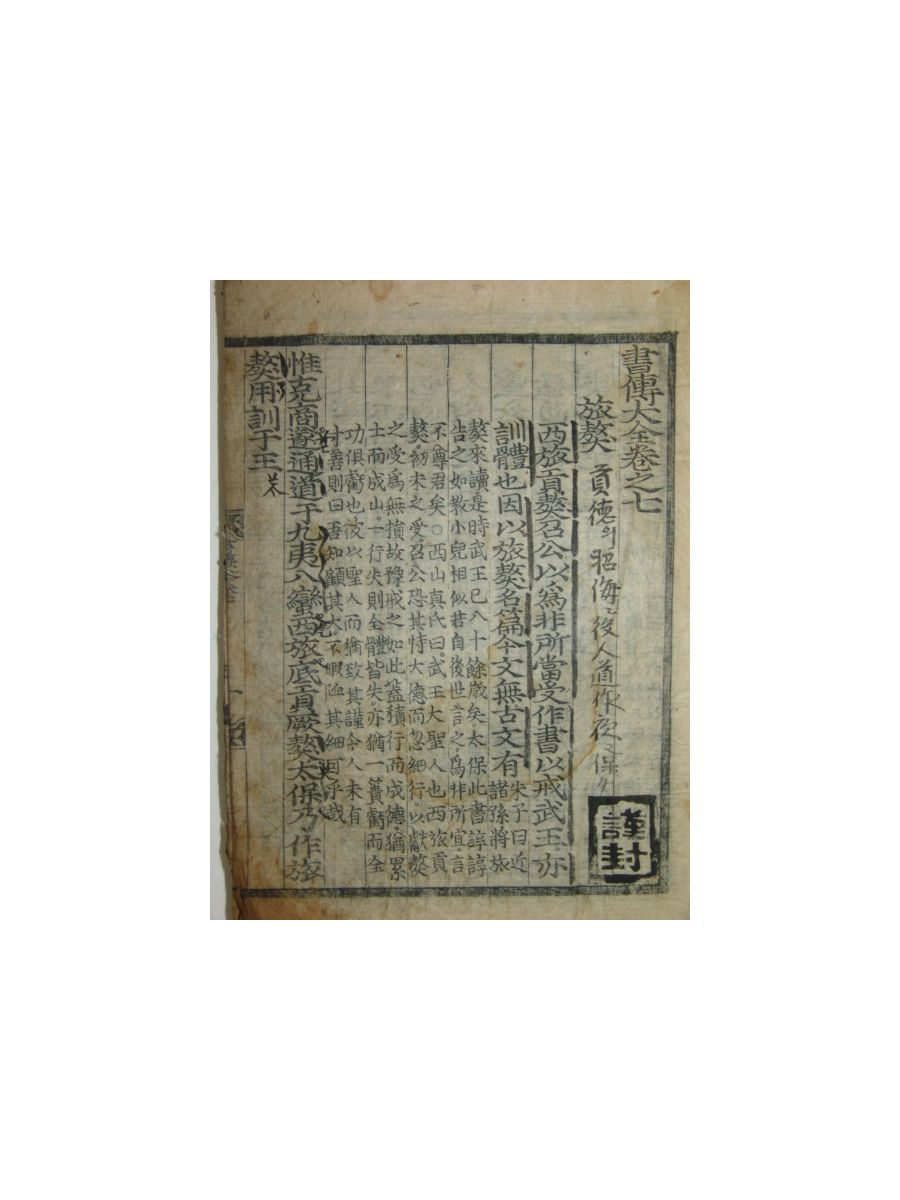 書傳大全卷之七
旅獒
貢德의昭
後人道作
謹封
西旅貢獒召公以爲非所當受作書以戒武王亦
訓體也因以旅獒名篇今文無古文有
朱子曰近
諸孫將旅
獒來讀是時武王已八十餘歲矣太保此書諄諄
告之如敎小兒相似若自後世言之爲非所宜言
不尊君矣○西山真氏曰武王大聖人也西旅貢
獒初未之受召公恐其恃大德而忽細行以獻獒
之受爲無損故豫戒之如此蓋積行而成德猶累
土而成山一行失則全體皆失亦猶一簣虧而全
功俱虧也彼以聖人而猶致其謹今人未有
寸善則曰吾知顧其大不暇恤其細可乎哉
惟克商遂通道于九夷八蠻西旅底貢厥獒太保乃作旅
獒用訓于王